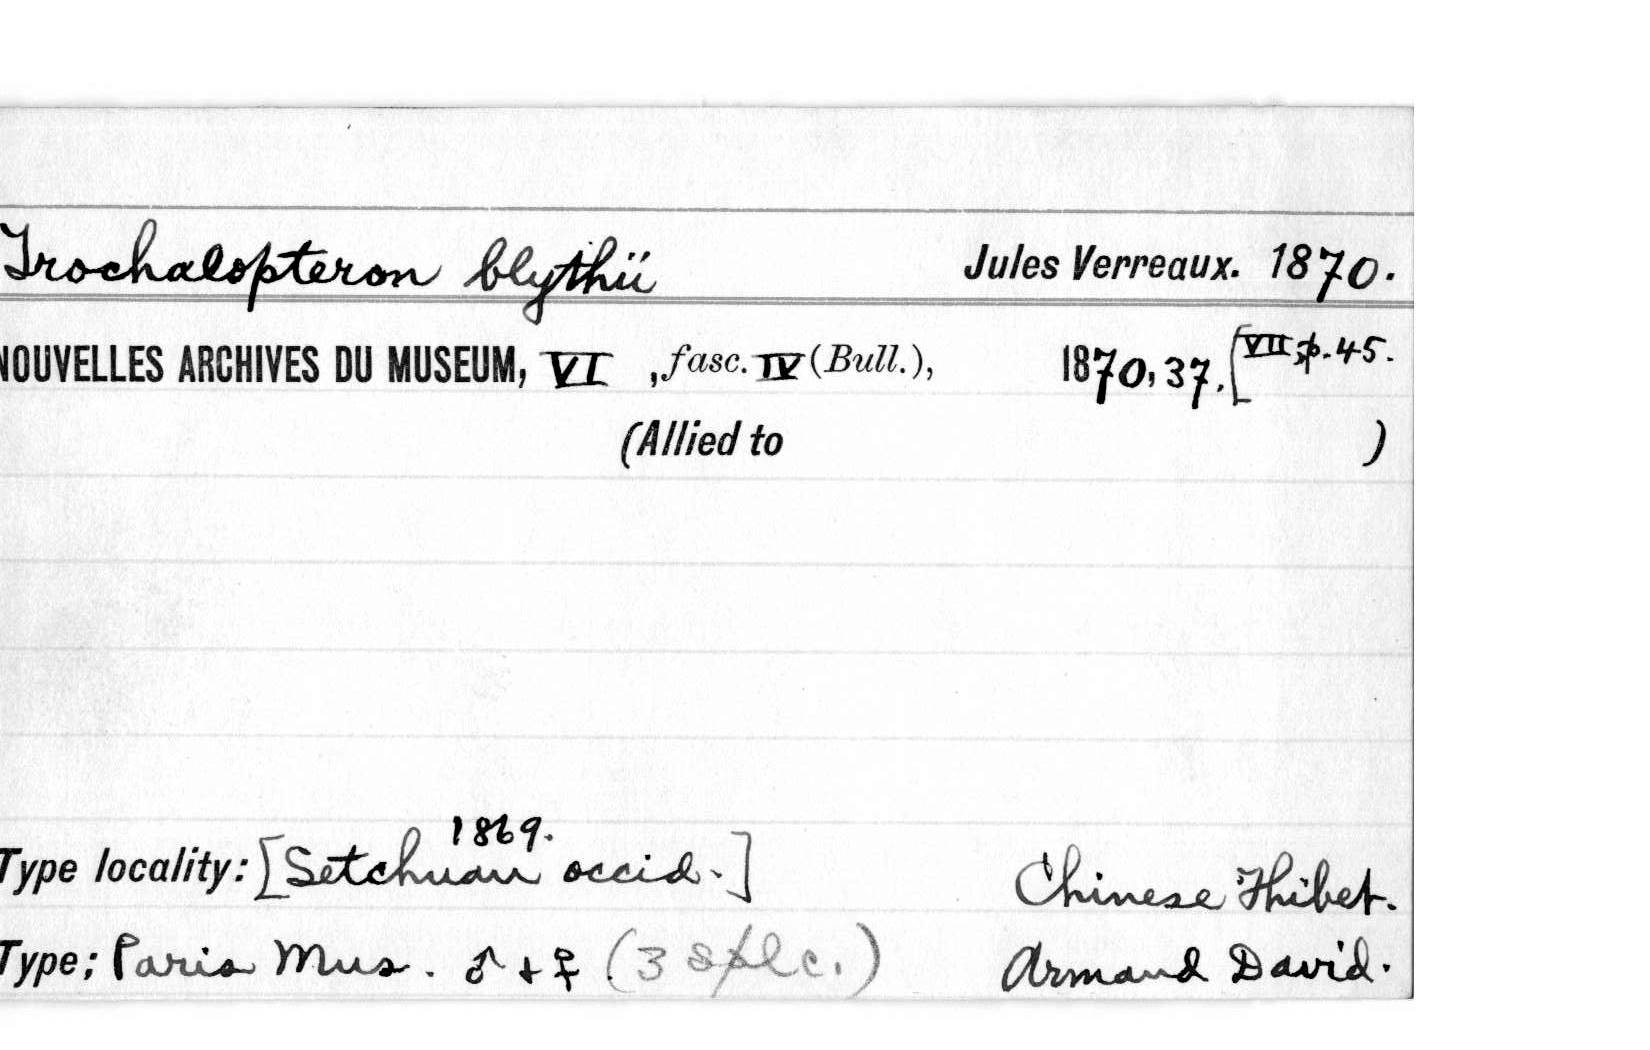 Trochalopteron blythii Jules Verreaux. 1870.
NOUVELLES ARCHIVES DU MUSEUM, VI , fasc. IV (Bull.), 1870, 37. [VII, p. 45.
(Allied to )
1869.
Type locality: [Setchuan occid.] Chinese Thibet.
Type; Paris Mus. ♂ + ♀ (3 spec.) Armand David.